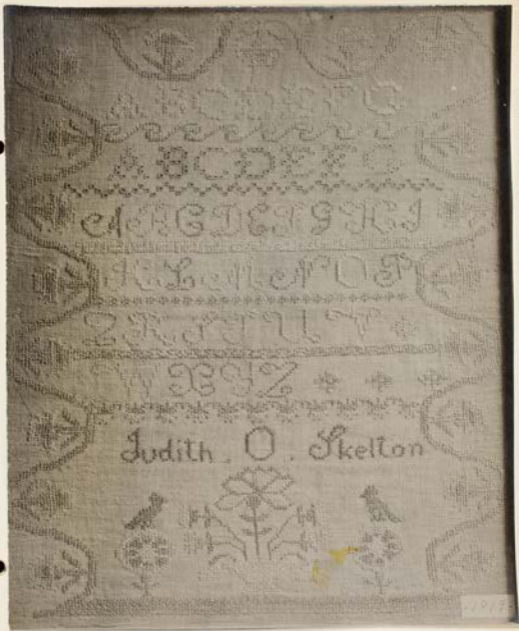 ABCDEFG
ABCDEFG
ABCDEFGHI
KLMNOP
QRSTUV
WXYZ
Judith. O. Skelton